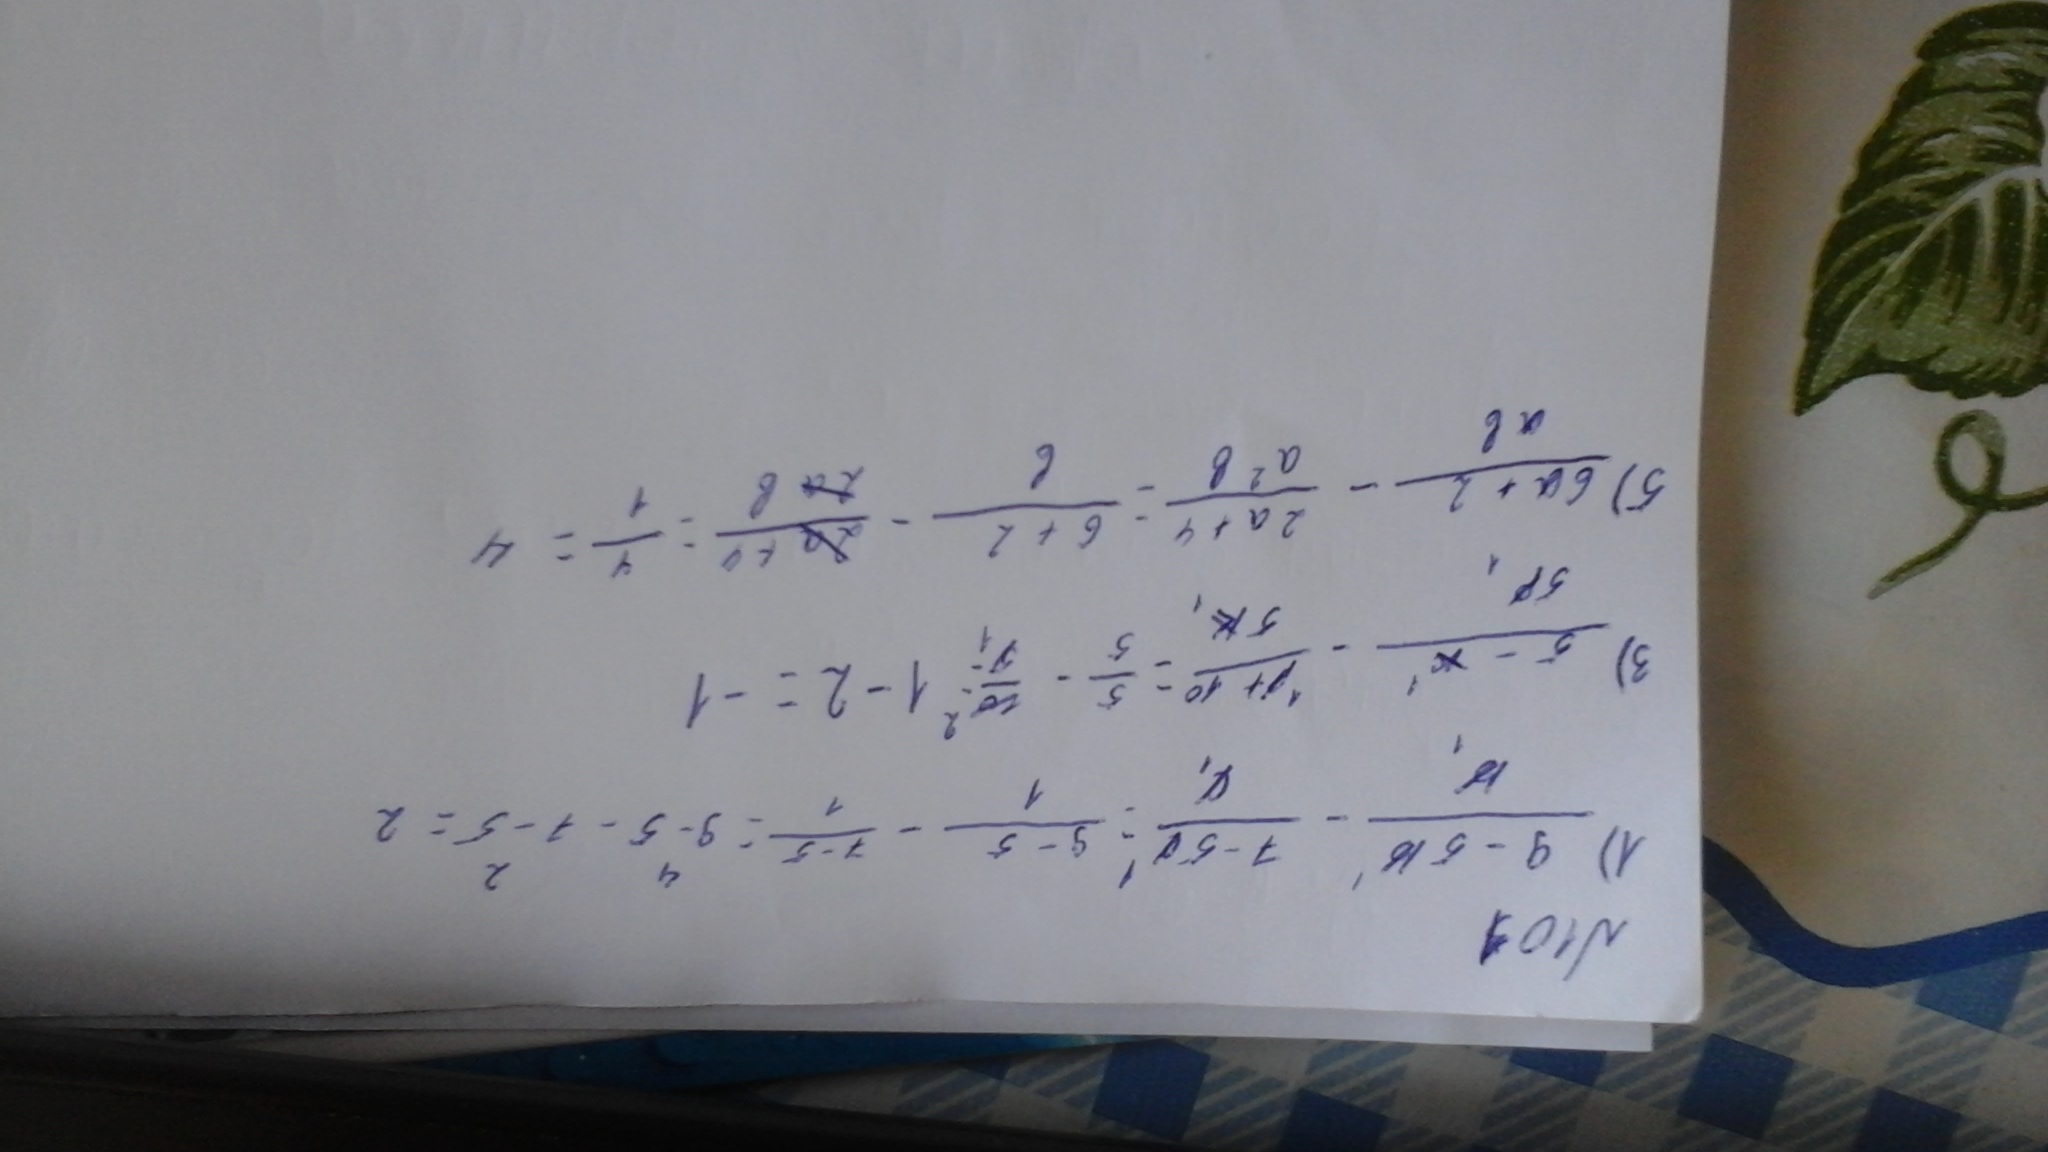 √101
1) 9 - 5b / b - 7 - 5a / a = 9 - 5 / 1 - 7-5 / 1 = 9-5 - 7-5 = 2
4 2
3) 5 - k / 5p - p + 10 / 5k = 5/5 - 10/5 = 1 - 2 = -1
5) 6a + 2 / ab - 2a + 4 / a²b = 6 + 2 / b - 2a + 4 / 2a b = 4/1 = 4